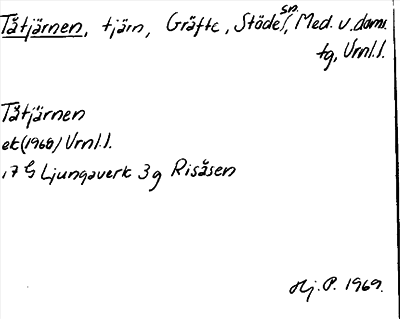 Tåtjärnen, tjärn, Gräfte, Stöde sn., Med. v. doms.
tg, Vrnl.l.
Tåtjärnen
ek (1968) Vrnl.l.
17 G Ljungaverk 3g Risåsen
Hj. P. 1969.